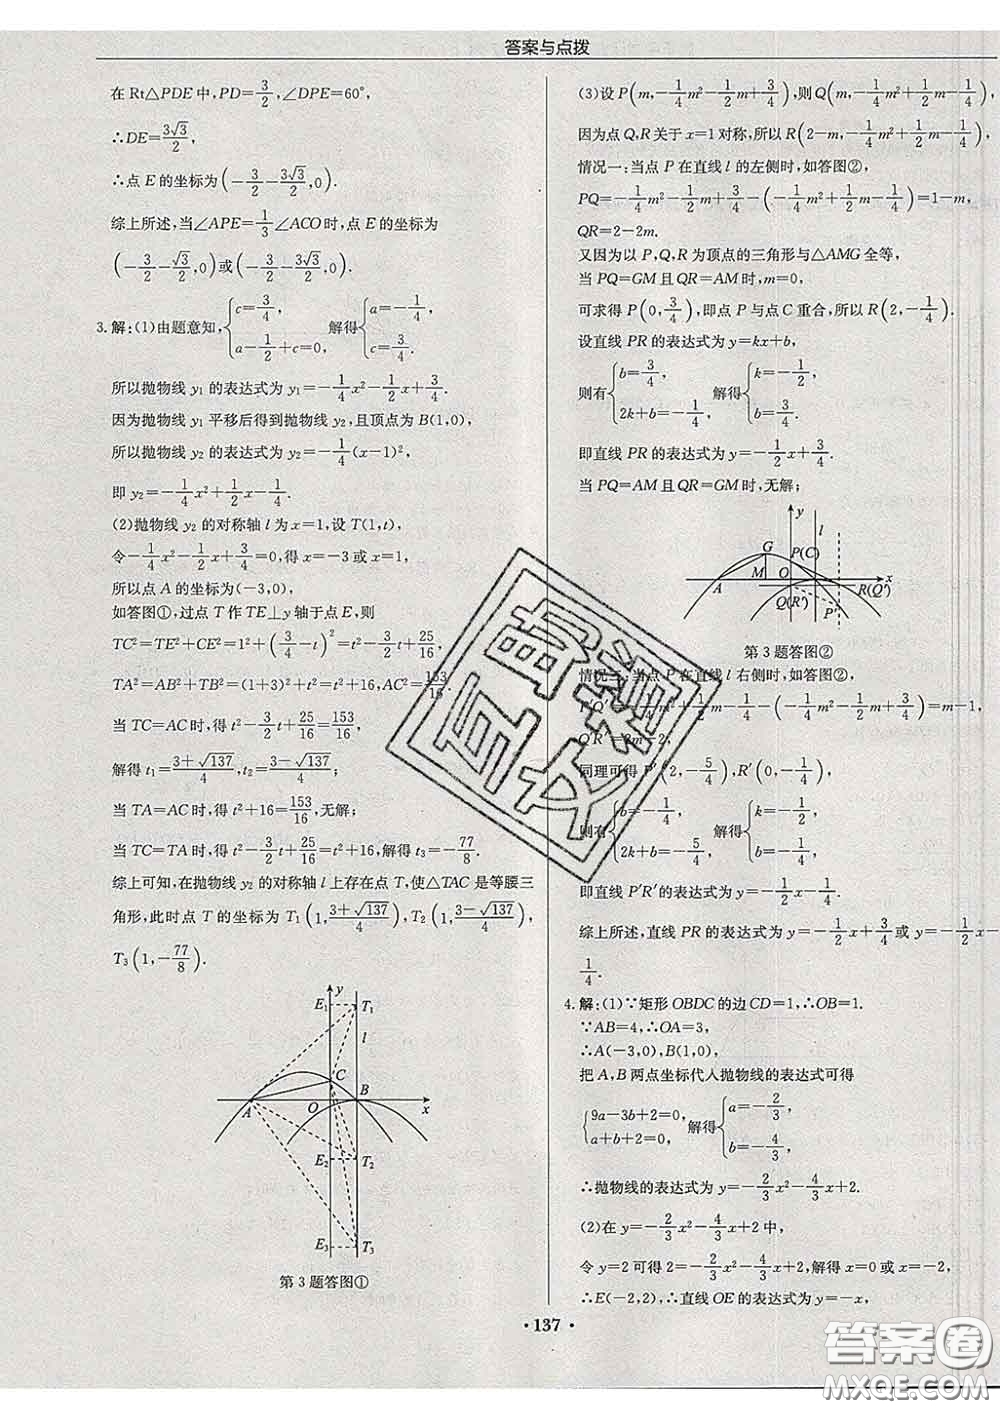 答案与点拨
在Rt△PDE中,PD=3/2,∠DPE=60°,
∴DE=3√3/2,
∴点E的坐标为(-3/2-3√3/2,0).
综上所述,当∠APE=1/3∠ACO时,点E的坐标为
(-3/2-√3/2,0)或(-3/2-3√3/2,0).
3.解:(1)由题意知,{c=3/4, a-1/2+c=0, 解得{a=-1/4, c=3/4.
所以抛物线y₁的表达式为y₁=-1/4x²-1/2x+3/4.
因为抛物线y₁平移后得到抛物线y₂,且顶点为B(1,0),
所以抛物线y₂的表达式为y₂=-1/4(x-1)²,
即y₂=-1/4x²+1/2x-1/4.
(2)抛物线y₂的对称轴l为x=1,设T(1,t),
令-1/4x²-1/2x+3/4=0,得x=-3或x=1,
所以点A的坐标为(-3,0).
如答图①,过点T作TE⊥y轴于点E,则
TC²=TE²+CE²=1²+(3/4-t)²=t²-3/2t+25/16,
TA²=AB²+TB²=(1+3)²+t²=t²+16,AC²=153/16.
当TC=AC时,得t²-3/2t+25/16=153/16,
解得t₁=3+√137/4,t₂=3-√137/4;
当TA=AC时,得t²+16=153/16,无解;
当TC=TA时,得t²-3/2t+25/16=t²+16,解得t₃=-77/8.
综上可知,在抛物线y₂的对称轴l上存在点T,使△TAC是等腰三
角形,此时点T的坐标为T₁(1,3+√137/4),T₂(1,3-√137/4),
T₃(1,-77/8).
E₁ y T₁
l
C B
A O x
E₂ T₂
E₃ T₃
第3题答图①
(3)设P(m,-1/4m²-1/2m+3/4),则Q(m,-1/4m²+1/2m-1/4),
因为点Q,R关于x=1对称,所以R(2-m,-1/4m²+1/2m-1/4)
情况一:当点P在直线l的左侧时,如答图②,
PQ=-1/4m²-1/2m+3/4-(-1/4m²+1/2m-1/4)=1-m,
QR=2-2m.
又因为以P,Q,R为顶点的三角形与△AMG全等,
当PQ=GM且QR=AM时,m=0,
可求得P(0,3/4),即点P与点C重合,所以R(2,-1/4).
设直线PR的表达式为y=kx+b,
则有{b=3/4, 2k+b=-1/4, 解得{k=-1/2, b=3/4.
即直线PR的表达式为y=-1/2x+3/4.
当PQ=AM且QR=GM时,无解;
y l
G P(C)
A M O x
Q(R′) R(Q′)
P′
第3题答图②
情况二:当点P在直线l右侧时,如答图②,
P′Q′=-1/4m²+1/2m-1/4-(-1/4m²-1/2m+3/4)=m-1,
Q′R′=2m-2,
同理可得P′(2,-5/4),R′(0,-1/4),
则有{b=-1/4, 2k+b=-5/4, 解得{k=-1/2, b=-1/4.
即直线P′R′的表达式为y=-1/2x-1/4.
综上所述,直线PR的表达式为y=-1/2x+3/4或y=-1/2x-
1/4.
4.解:(1)∵矩形OBDC的边CD=1,∴OB=1.
∵AB=4,∴OA=3,
∴A(-3,0),B(1,0),
把A,B两点坐标代入抛物线的表达式可得
{9a-3b+2=0, a+b+2=0, 解得{a=-2/3, b=-4/3,
∴抛物线的表达式为y=-2/3x²-4/3x+2.
(2)在y=-2/3x²-4/3x+2中,
令y=2可得2=-2/3x²-4/3x+2,解得x=0或x=-2,
∴E(-2,2),∴直线OE的表达式为y=-x,
• 137 •
答案圈
MXQE.COM